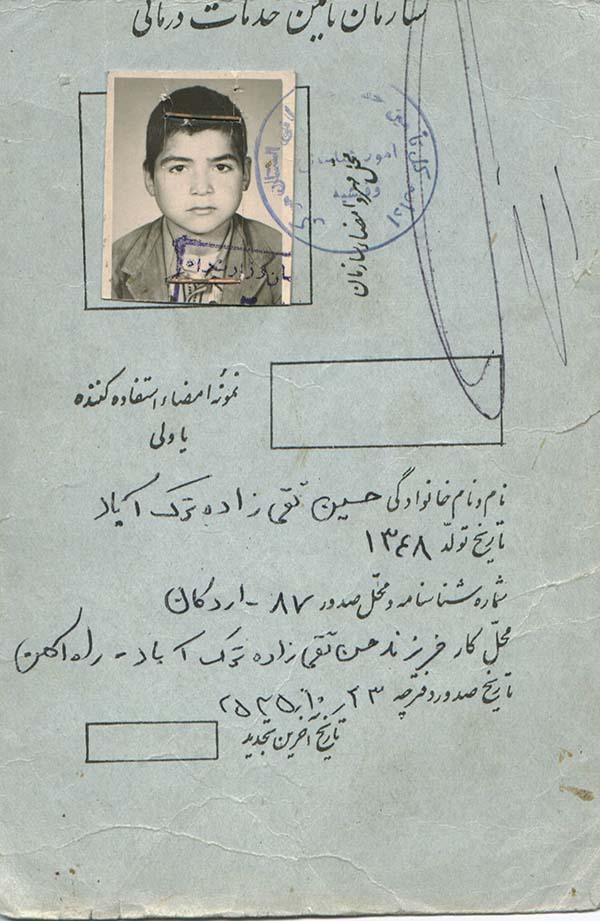 سازمان تامین خدمات درمانی
محل مهر و امضاء سازمان
نمونه امضاء استفاده کننده
یا ولی
نام و نام خانوادگی حسین تقی زاده ترک آباد
تاریخ تولد ۱۳۴۸
شماره شناسنامه و محل صدور ۸۷ - اردکان
محل کار فرزند حسن تقی زاده ترک آباد - راه آهن
تاریخ صدور دفترچه ۲۳
تاریخ آخرین تجدید